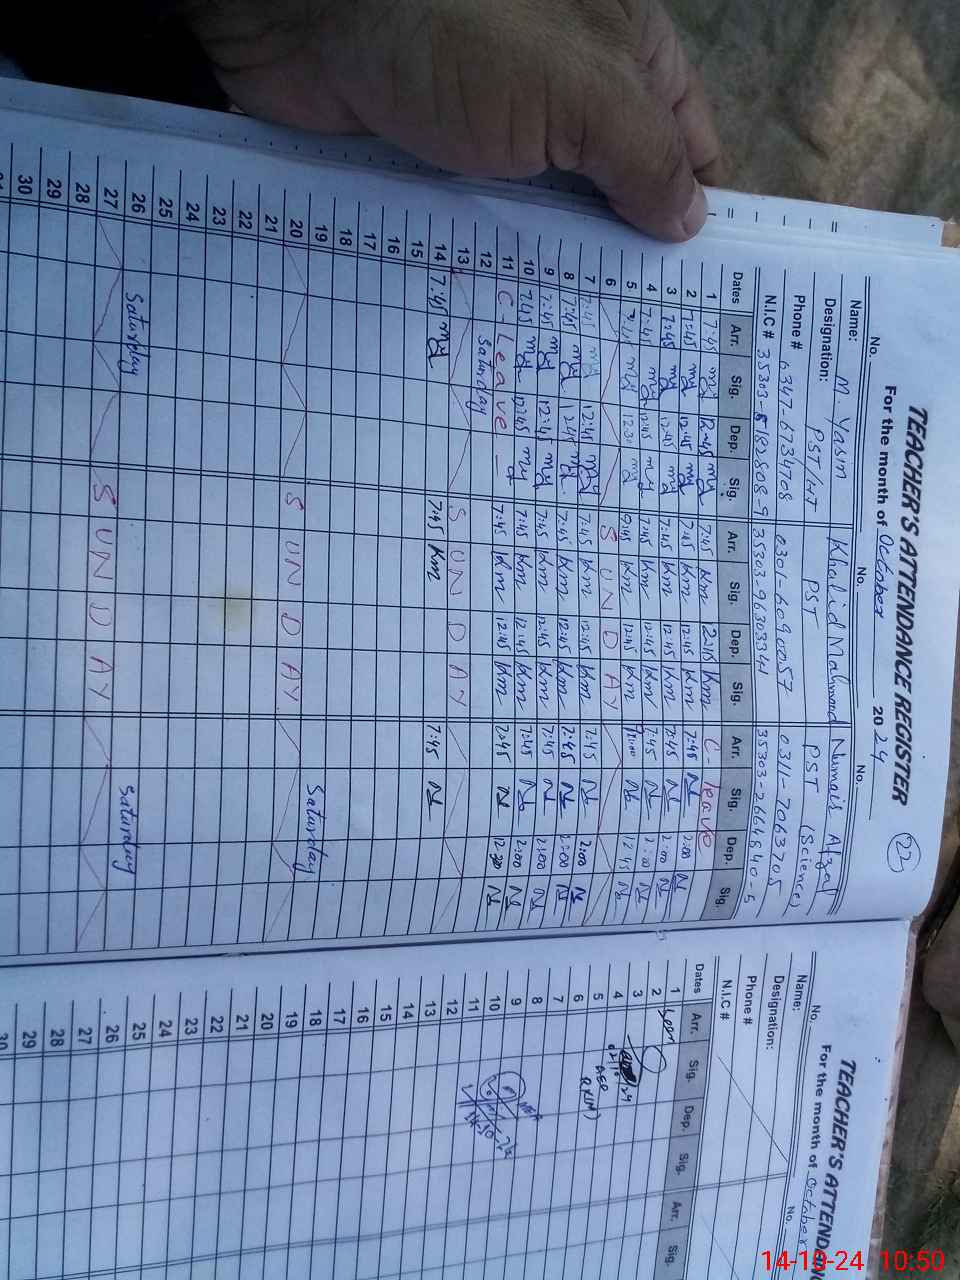 TEACHER'S ATTENDANCE REGISTER
22
For the month of October 2024
No. No. No.
Name: M. Yasin Khalid Mahmood Numais Afzal
Designation: PST/HT PST PST (Science)
Phone # 0347-6734708 0301-6090057 0311-7063705
N.I.C # 35303-5182808-9 35303-9630334 35303-2664840-5
Dates Arr. Sig. Dep. Sig. Arr. Sig. Dep. Sig. Arr. Sig. Dep. Sig.
1 7:45 my 12:45 my 7:45 Km Km C - Leave
2 7:45 my 12:45 my 7:45 Km 12:45 Km 7:45 2:00
3 7:45 my 12:45 my 7:45 Km 12:45 Km 7:45 2:00
4 7:45 my 12:45 my 7:45 Km 12:45 Km 7:45 2:00
5 my 12:30 my Km 12:45 Km 12:45
6 S U N D A Y
7 7:45 my 12:45 my 7:45 Km 12:45 Km 7:45 2:00
8 7:45 my 12:45 my 7:45 Km 12:45 Km 7:45 2:00
9 7:45 my 12:45 my 7:45 Km 12:45 Km 7:45 2:00
10 7:45 my 12:45 my 7:45 Km 12:45 Km 7:45 2:00
11 C - Leave - 7:45 Km 12:45 Km 7:45 12:30
12 Saturday
13 S U N D A Y
14 7:45 my 7:45 Km 7:45
15
16
17
18
19 Saturday
20 S U N D A Y
21
22
23
24
25
26 Saturday Saturday
27 S U N D A Y
28
29
30
31
TEACHER'S ATTENDAN
For the month of October
No. No.
Name:
Designation:
Phone #
N.I.C #
Dates Arr. Sig. Dep. Sig. Arr. Sig.
1
2
3
4
5
6
7
8
9
10
11
12
13
14
15
16
17
18
19
20
21
22
23
24
25
26
27
28
29
30
14-10-24 10:50